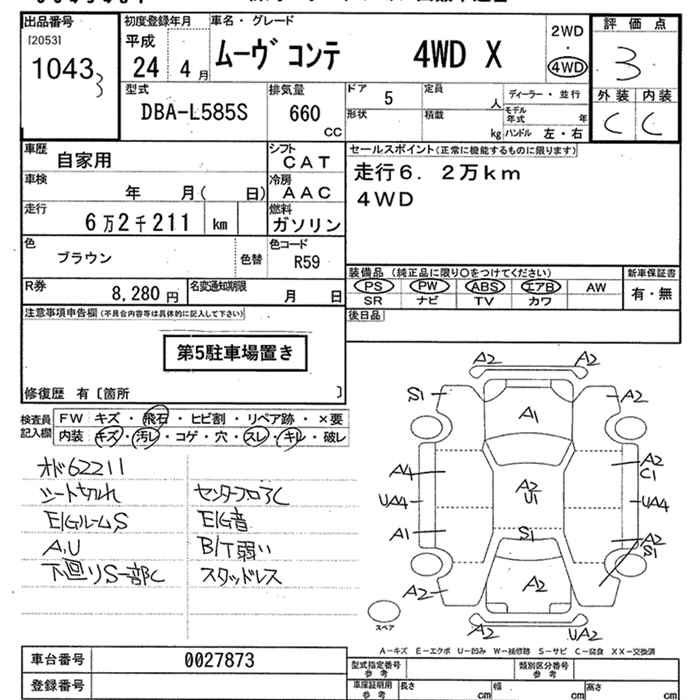 出品番号 初度登録年月 車名・グレード 評価点
[2053] 1043 3
平成 24年 4月 ムーヴ コンテ 4WD X 2WD・4WD 3
型式 排気量 ドア 5 定員 人 ディーラー・並行 外装 内装
DBA-L585S 660 CC 形状 積載 kg モデル年式 年 ハンドル 左・右 C C
車歴 自家用 シフト CAT セールスポイント(正常に機能するものに限ります)
車検 年 月( 日) 冷房 AAC 走行6．2万km
走行 6万2千211 km 燃料 ガソリン 4WD
色 ブラウン 色替 色コード R59
装備品 (純正品に限り○をつけてください) 新車保証書
R券 8,280円 名変通知期限 月 日 PS PW ABS エアB AW 有・無
SR ナビ TV カワ
注意事項申告欄(不具合内容等は具体的に記入して下さい) 後日品
第5駐車場置き
修復歴 有〔箇所 〕
検査員記入欄 FW キズ・飛石・ヒビ割・リペア跡・×要
内装 キズ・汚レ・コゲ・穴・スレ・キレ・破レ
オド62211
シート切れ センターフロアC
E/GルームS E/G音
A,U B/T弱い
下回りS一部C スタッドレス
A2 A2
S1 A1 A2
A4 A2 C1
UA4 A2 U1 UA4
A1 S1 A2 S1
A2 A2
スペア A2 UA2
A－キズ E－エクボ U－凹み W－補修跡 S－サビ C－腐食 XX－交換済
車台番号 0027873 型式指定番号 参考 類別区分番号 参考
登録番号 車庫証明用 参考 長さ cm 幅 cm 高さ cm